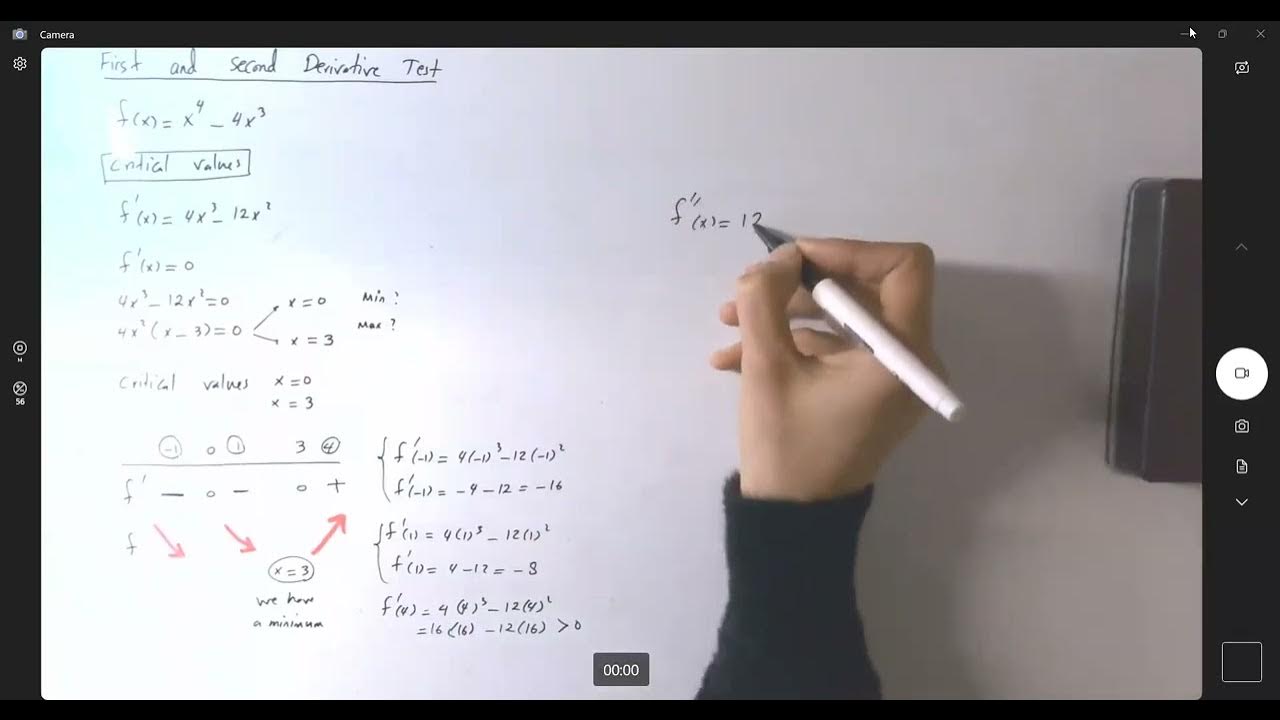 Camera
First and second Derivative Test
f(x) = x⁴ - 4x³
Critical values
f'(x) = 4x³ - 12x²
f'(x) = 0
4x³ - 12x² = 0
4x²(x - 3) = 0
x = 0
x = 3
Min ?
Max ?
Critical values x = 0
x = 3
-1 0 1 3 4
f' — 0 — 0 +
f
x = 3
we have
a minimum
f'(-1) = 4(-1)³ - 12(-1)²
f'(-1) = -4 - 12 = -16
f'(1) = 4(1)³ - 12(1)²
f'(1) = 4 - 12 = -8
f'(4) = 4(4)³ - 12(4)²
= 16(16) - 12(16) > 0
f''(x) = 12
00:00
56